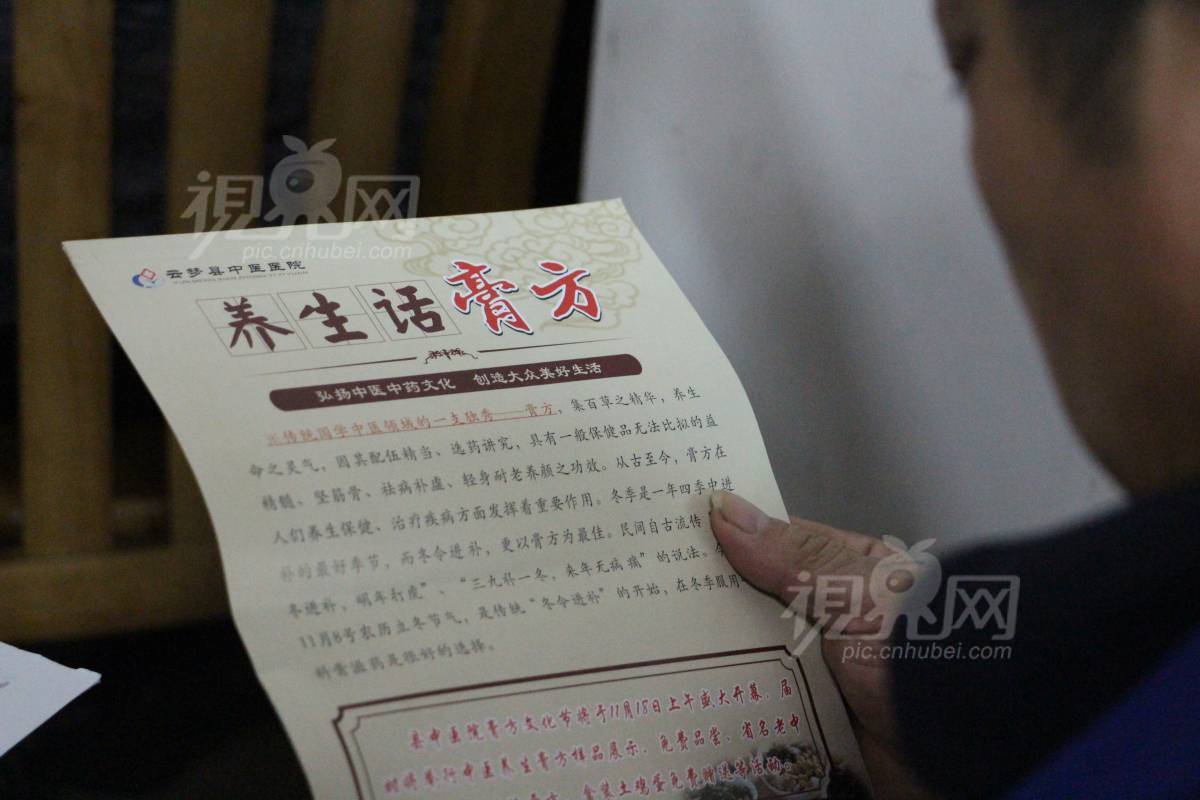 視界网
pic.cnhubei.com
云梦县中医医院
养生话膏方
弘扬中医中药文化 创造大众美好生活
※传统国学中医领域的一支独秀——膏方，集百草之精华，养生
命之灵气，因其配伍精当、选药讲究，具有一般保健品无法比拟的益
精髓、坚筋骨、祛病补虚、轻身耐老养颜之功效。从古至今，膏方在
人们养生保健、治疗疾病方面发挥着重要作用。冬季是一年四季中进
补的最好季节，而冬令进补，更以膏方为最佳。民间自古流传
冬进补，明年打虎”、“三九补一冬，来年无病痛”的说法。
11月8号农历立冬节气，是传统“冬令进补”的开始，在冬季服用
科膏滋药是很好的选择。
县中医院膏方文化节将于11月18日上午盛大开幕，届
时将举行中医养生膏方样品展示、免费品尝、省名老中
盒装土鸡蛋免费赠送等活动。
視界网
pic.cnhubei.com